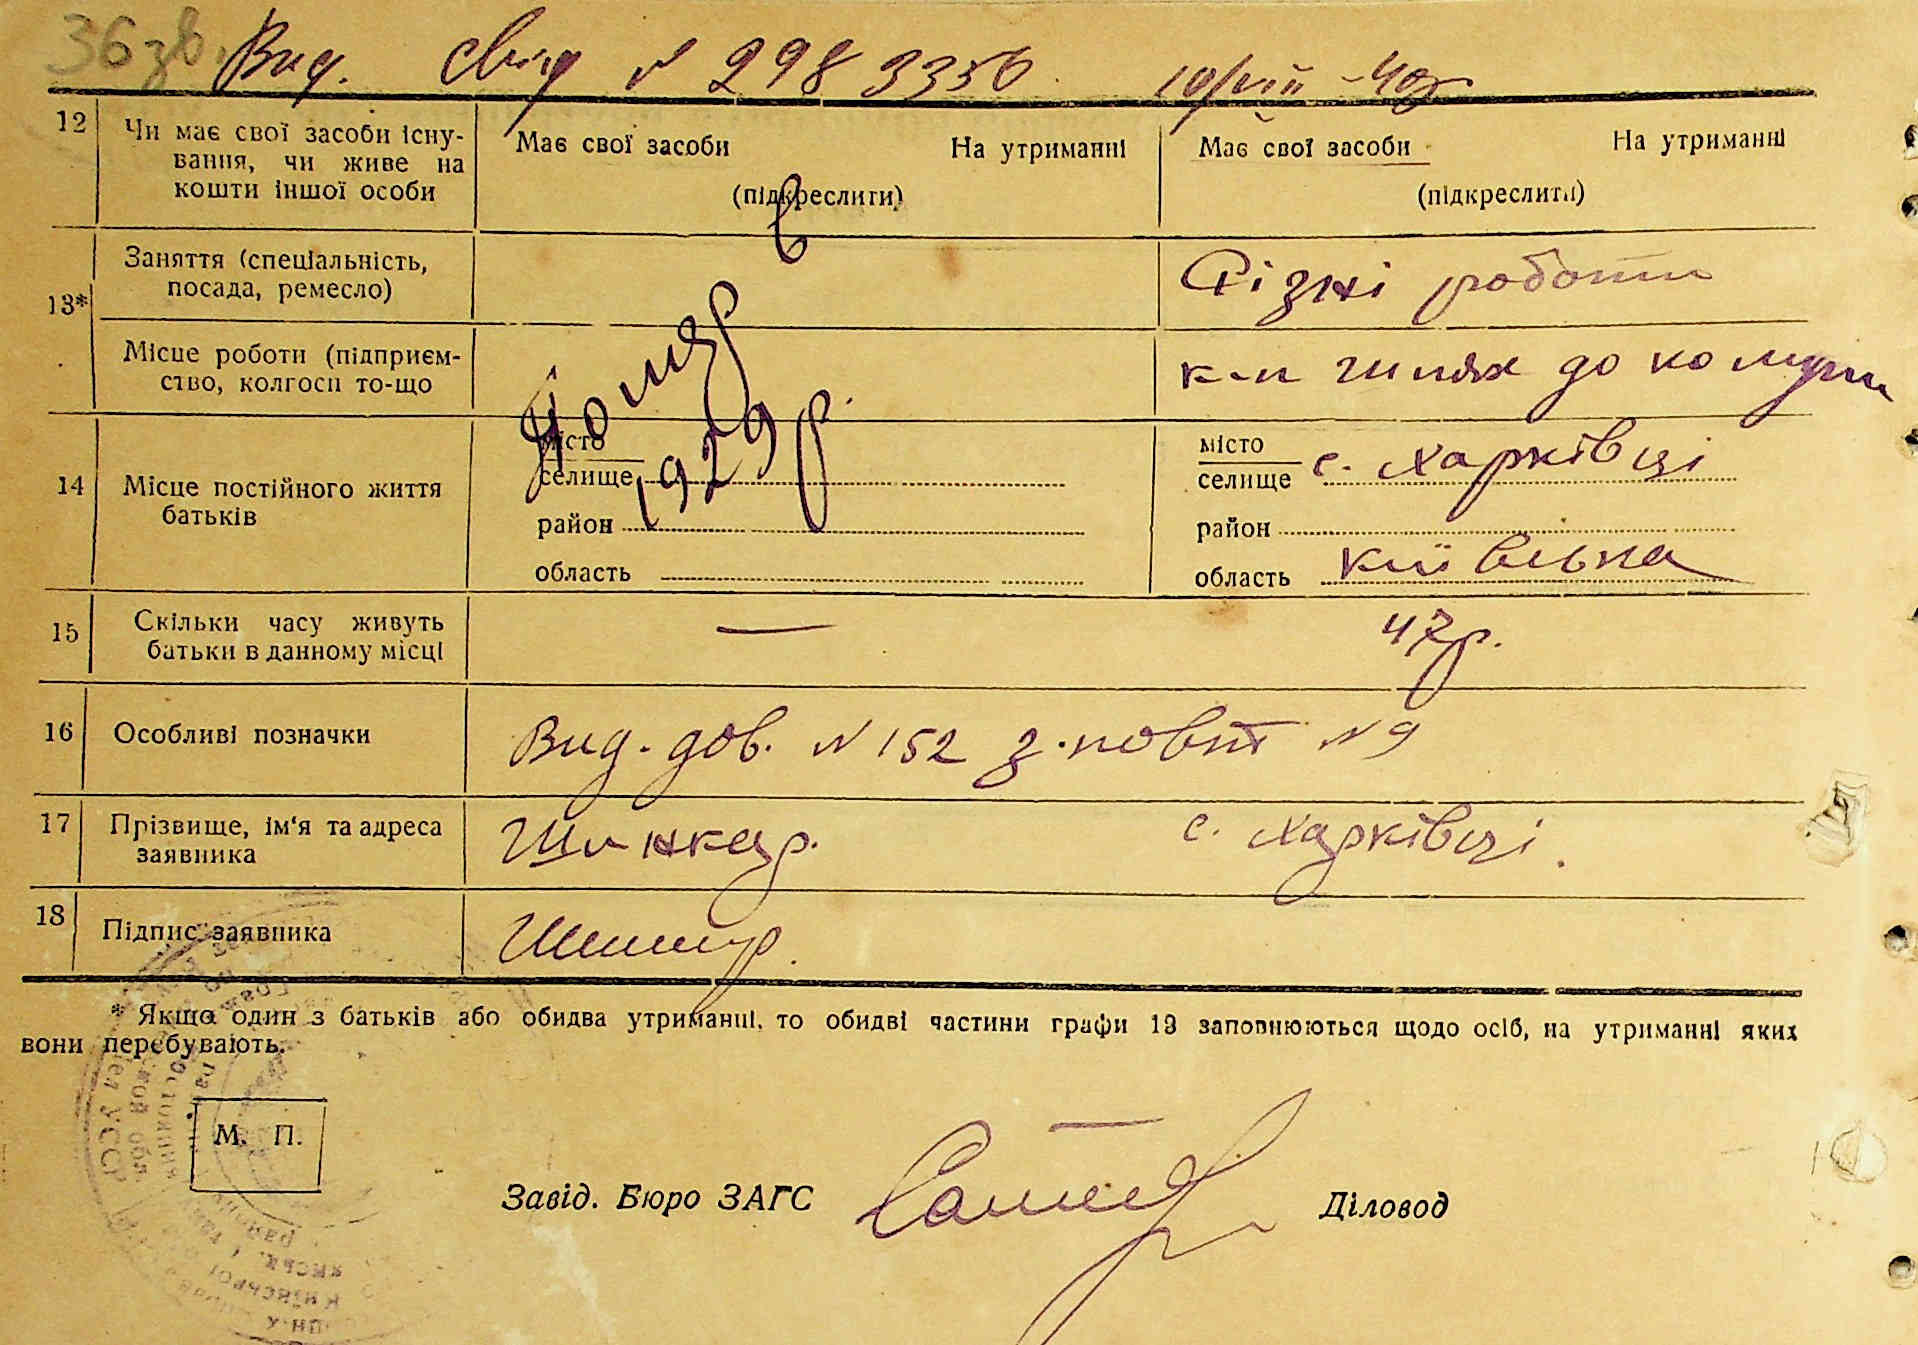 36 зв.
Вид. свид N 298 3356 10/VIII -40р
12 Чи має свої засоби існування, чи живе на кошти іншої особи
Має свої засоби На утриманні
(підкреслити)
Має свої засоби На утриманні
(підкреслити)
13* Заняття (спеціальність,
посада, ремесло)
Різні роботи
Місце роботи (підприєм-
ство, колгосп то-що
к-п шлях до комуни
Помер в
1929 р.
14 Місце постійного життя
батьків
місто
селище
район
область
місто
селище с. Харківці
район
область Київська
15 Скільки часу живуть
батьки в данному місці
— 47р.
16 Особливі позначки
Вид. дов. N 152 з.повт N 9
17 Прізвище, ім'я та адреса
заявника
Шинкар. с. Харківці.
18 Підпис заявника
* Якщо один з батьків або обидва утриманці, то обидві частини графи 13 заповнюються щодо осіб, на утриманні яких
вони перебувають.
М. П.
Завід. Бюро ЗАГС Діловод